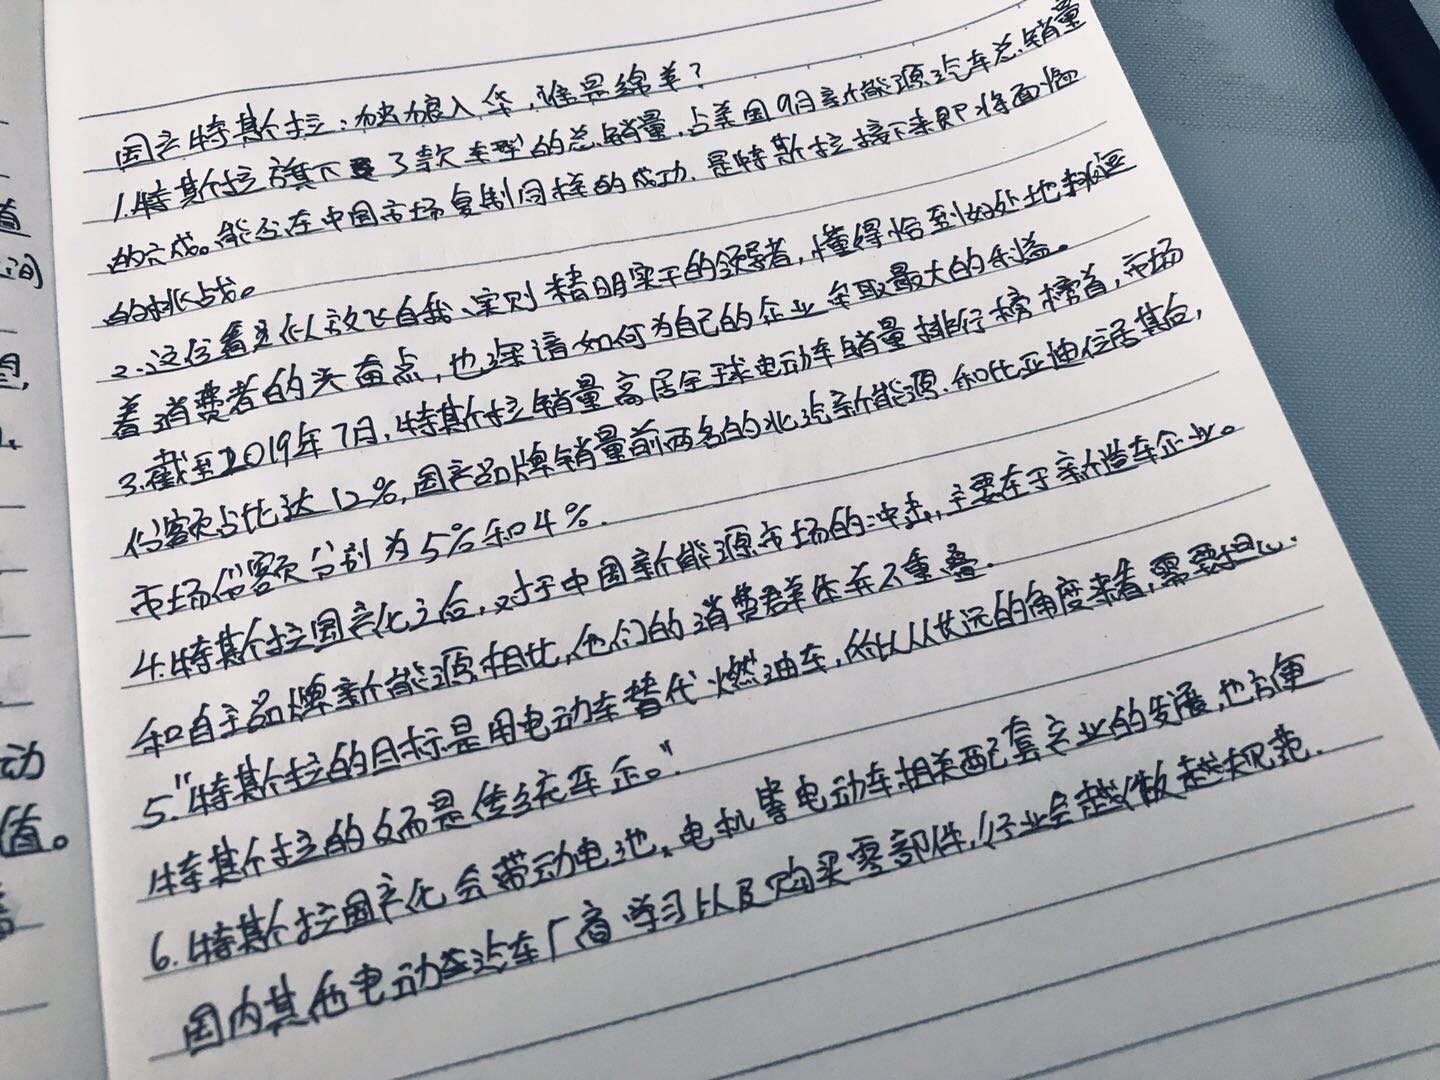 国产特斯拉：独狼入华，谁是绵羊？
1.特斯拉旗下3款车型的总销量，占美国9月新能源汽车总销量
的六成。能否在中国市场复制同样的成功，是特斯拉接下来即将面临
的挑战。
2.这位看似放飞自我、实则精明实干的领导者，懂得恰到好处地挑逗
着消费者的兴奋点，也深谙如何为自己的企业牟取最大的利益。
3.截至2019年7月，特斯拉销量高居全球电动车销量排行榜榜首，市场
份额占比达12%，国产品牌销量前两名的北汽新能源、和比亚迪位居其后，
市场份额分别为5%和4%.
4.特斯拉国产化之后，对于中国新能源市场的冲击，主要在于新造车企业。
和自主品牌新能源相比，他们的消费群体并不重叠.
5."特斯拉的目标是用电动车替代燃油车，所以从长远的角度来看，需要担心
特斯拉的反而是传统车企。"
6.特斯拉国产化会带动电池、电机等电动车相关配套产业的发展，也方便
国内其他电动汽车厂商学习以及购买零部件，行业会越做越规范.
动
值。